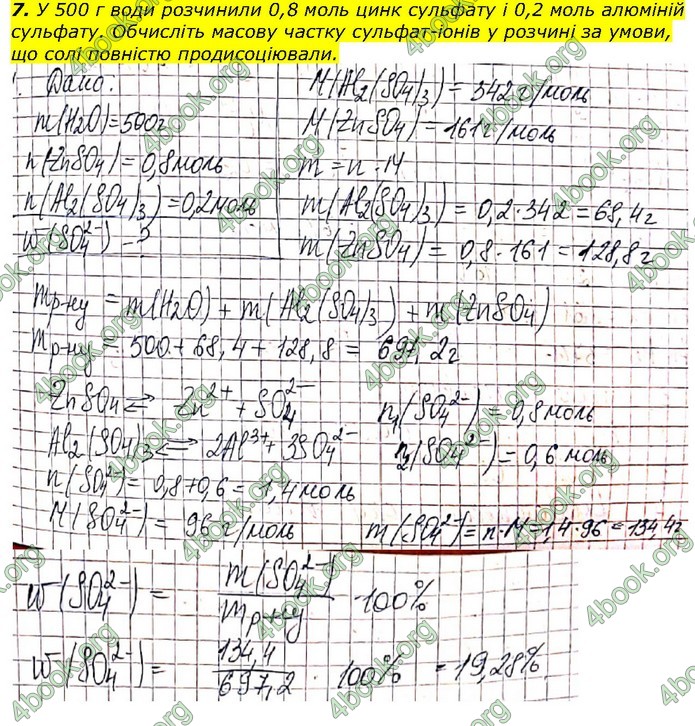 7. У 500 г води розчинили 0,8 моль цинк сульфату і 0,2 моль алюміній
сульфату. Обчисліть масову частку сульфат-іонів у розчині за умови,
що солі повністю продисоціювали.
Дано.
m(H₂O)=500г
n(ZnSO₄)=0,8моль
n(Al₂(SO₄)₃)=0,2моль
w(SO₄²⁻) - ?
M(Al₂(SO₄)₃)= 342 г/моль
M(ZnSO₄)= 161 г/моль
m = n · M
m(Al₂(SO₄)₃) = 0,2·342 = 68,4г
m(ZnSO₄) = 0,8·161 = 128,8г
mр-ну = m(H₂O) + m(Al₂(SO₄)₃) + m(ZnSO₄)
mр-ну = 500 + 68,4 + 128,8 = 697,2г
ZnSO₄ ⇄ Zn²⁺ + SO₄²⁻ n₁(SO₄²⁻) = 0,8моль
Al₂(SO₄)₃ ⇄ 2Al³⁺ + 3SO₄²⁻ n₂(SO₄²⁻) = 0,6 моль
n(SO₄²⁻) = 0,8+0,6 = 1,4моль
M(SO₄²⁻) = 96 г/моль m(SO₄²⁻) = n·M = 1,4·96 = 134,4г
w(SO₄²⁻) = m(SO₄²⁻) / mр-ну · 100%
w(SO₄²⁻) = 134,4 / 697,2 · 100% = 19,28%
4book.org